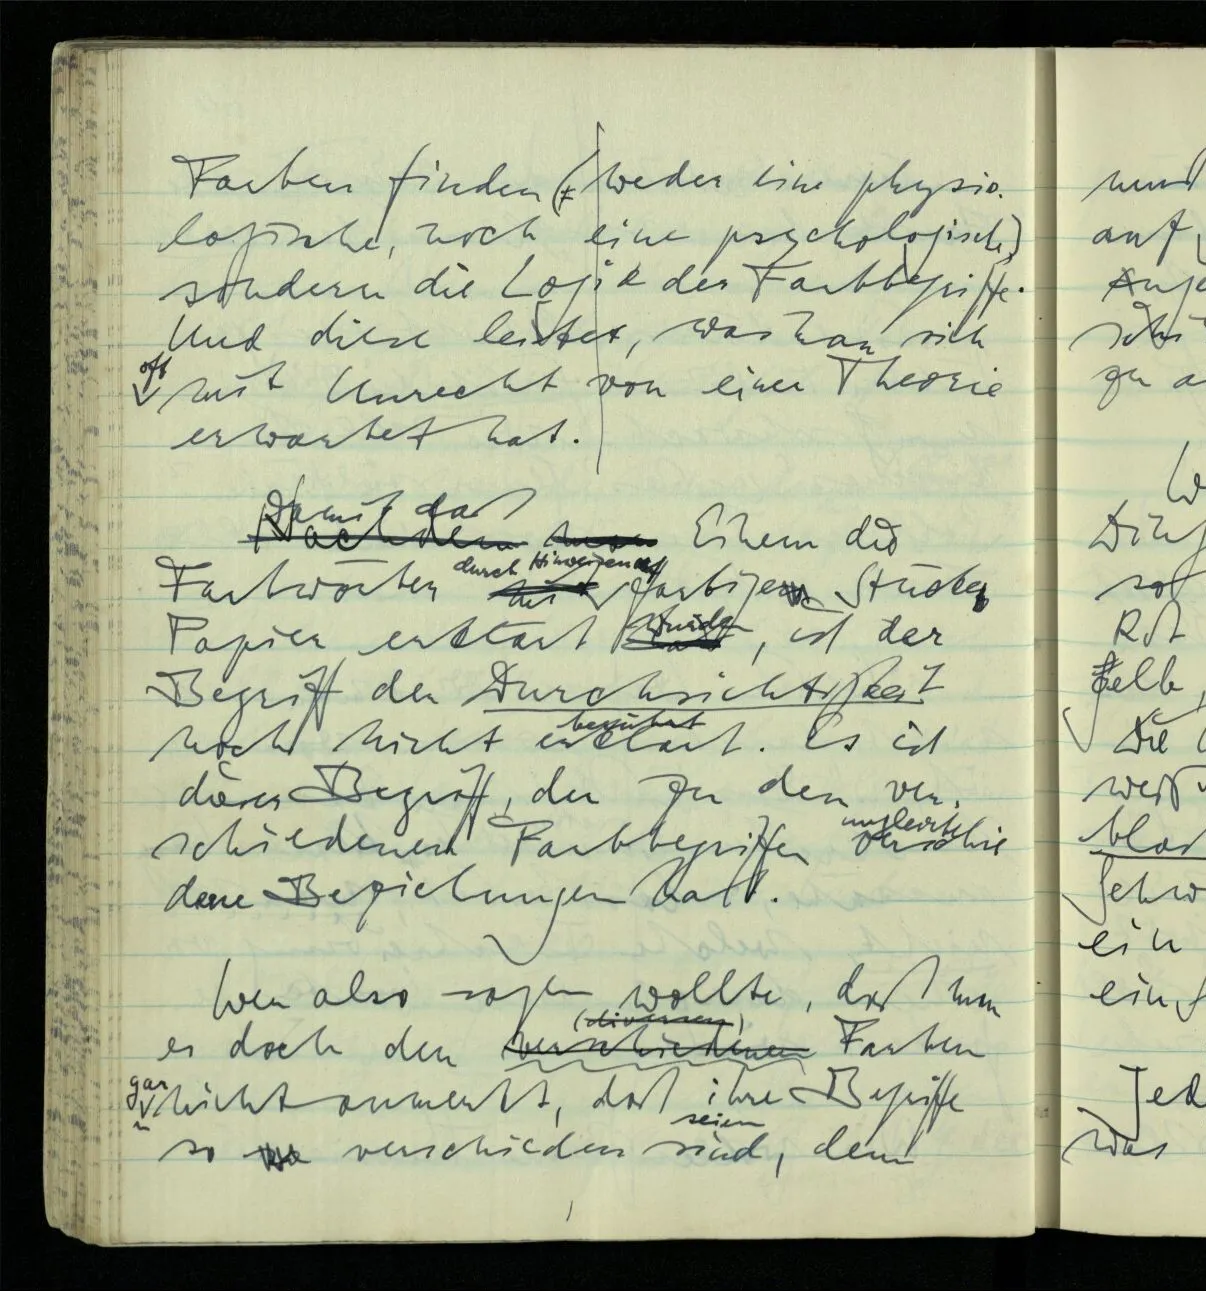 Farben finden (≠ weder eine physio-
logische, noch eine psychologische)
sondern die Logik der Farbbegriffe.
Und diese leistet, was man sich
oft
mit Unrecht von einer Theorie
erwartet hat.
Damit daß
Nachdem man Einem die
durch Hinweisen auf
Farbwörter mit farbigen Stücken
wurden
Papier erklärt, ist der
Begriff der Durchsichtigkeit
berührt
noch nicht erklärt. Es ist
dieser Begriff, der zu den ver-
ungleichartige
schiedenen Farbbegriffen verschie
dene Beziehungen hat.
Wer also sagen wollte, daß man
(diversen)
es doch den verschiedenen Farben
gar
nicht anmerkt, daß ihre Begriffe
seien
so verschieden sind, dem
mund
auf
so
Rot
Gelb,
Die
ein
Jed
was